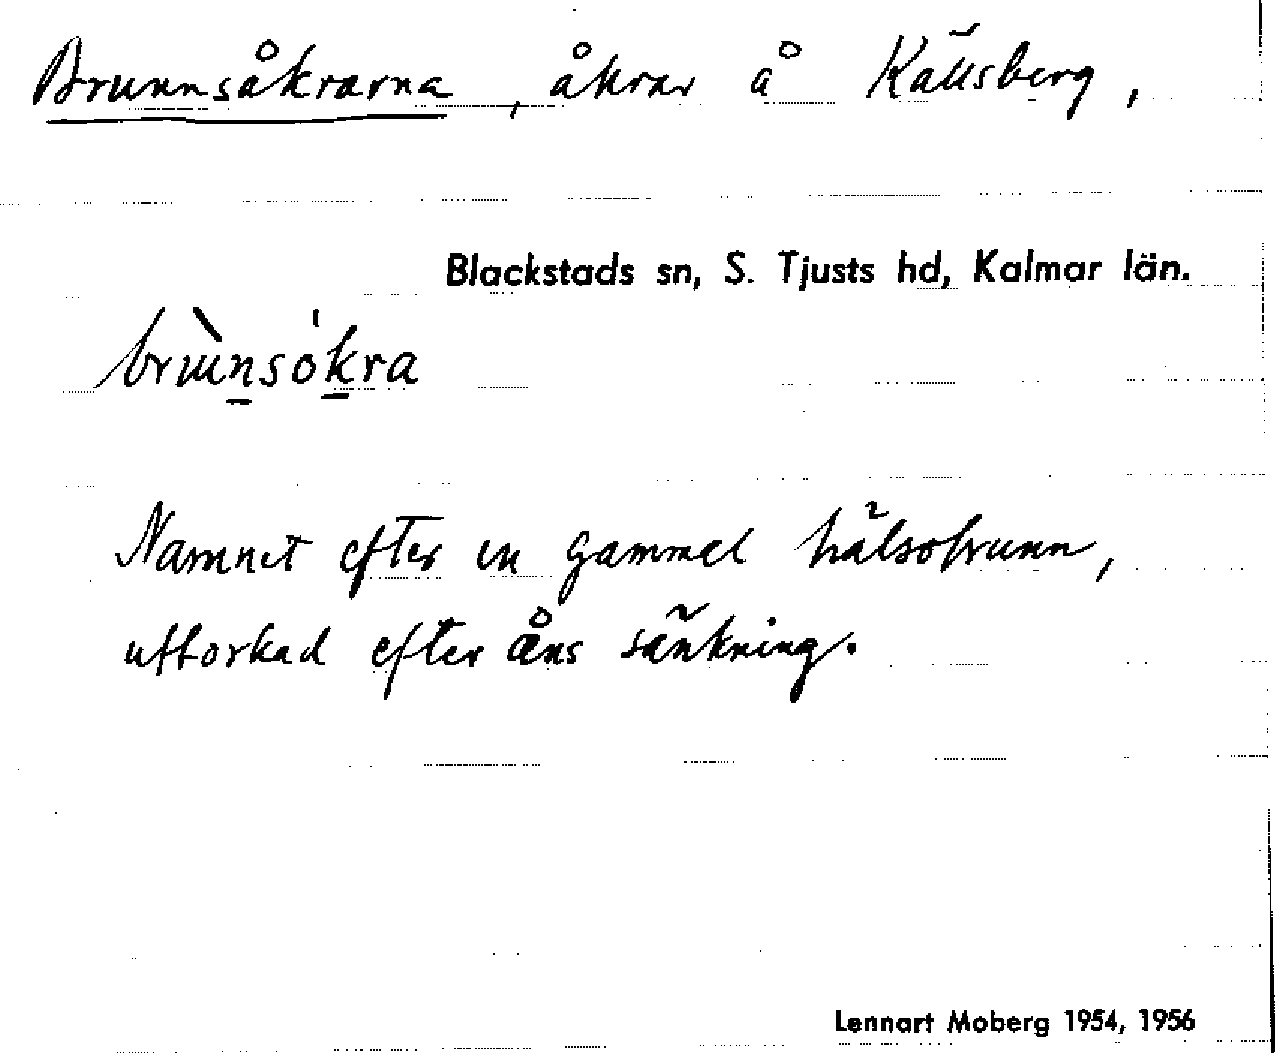 Brunnsåkrarna, åkrar å Källsberg,
Blackstads sn, S. Tjusts hd, Kalmar län.
brùnsókra
Namnet efter en gammel hälsobrunn,
uttorkad efter åns sänkning.
Lennart Moberg 1954, 1956